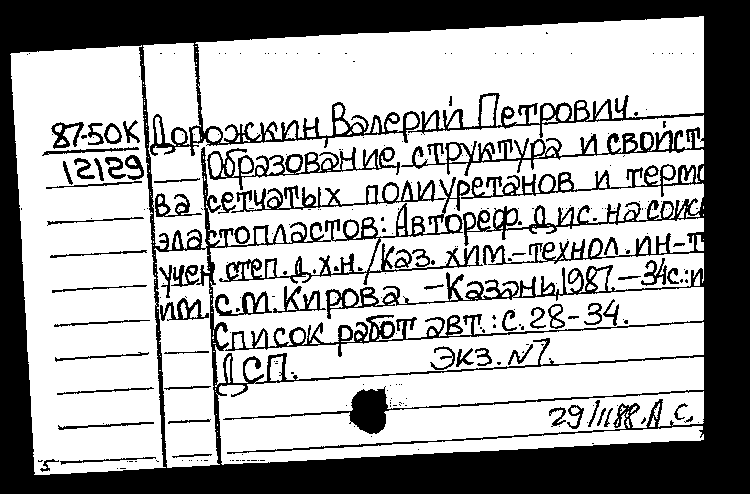 87-50К Дорожкин, Валерий Петрович.
12129 Образование, структура и свойст-
ва сетчатых полиуретанов и термо
эластопластов: Автореф. дис. на соиск
учен. степ. д.х.н./Каз. хим.-технол. ин-т
им. С.М. Кирова. -Казань, 1987. - 34с.:и
Список работ авт.: с. 28-34.
ДСП. Экз. №7.
29/II 88. А.С.
5